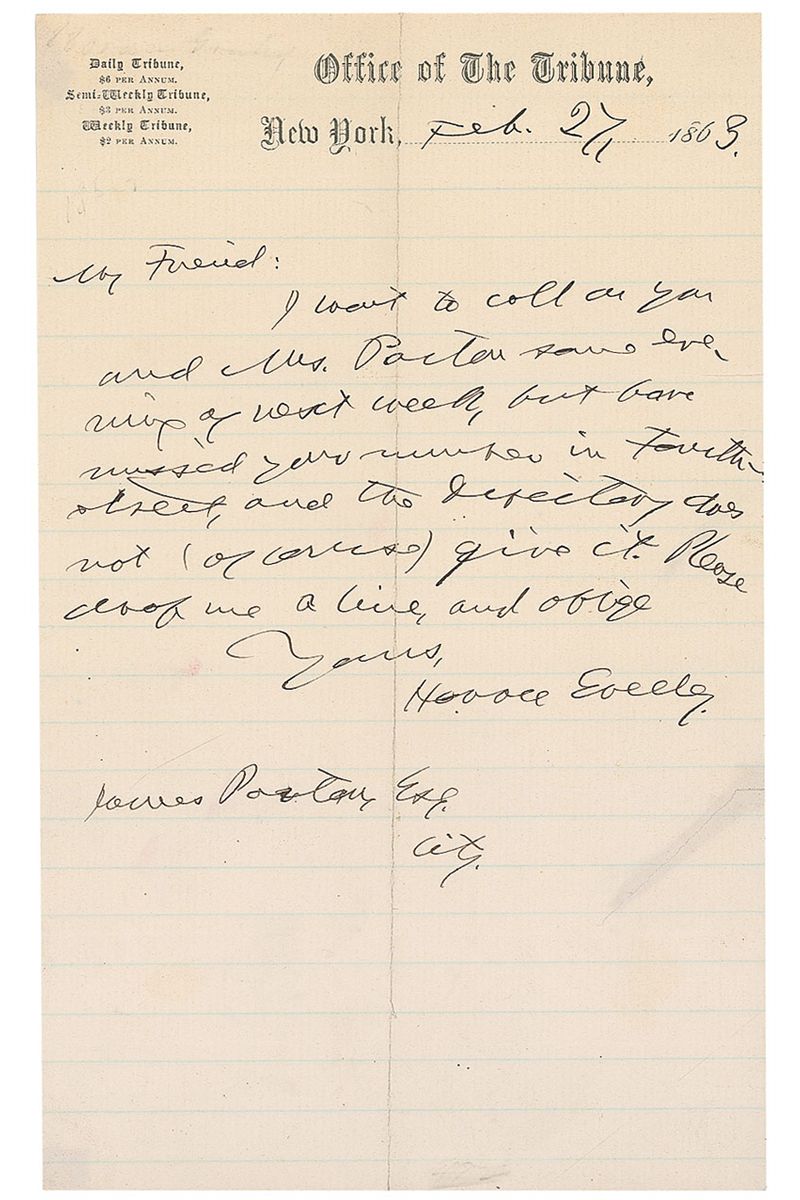 Daily Tribune,
$6 PER ANNUM.
Semi-Weekly Tribune,
$3 PER ANNUM.
Weekly Tribune,
$2 PER ANNUM.
Office of The Tribune,
New York, Feb. 27, 1863.
My Friend:
I want to call on you
and Mrs. Parton some eve-
ning of next week, but have
missed your number in Fourth-
street, and the Directory does
not (of course) give it. Please
drop me a line, and oblige
Yours,
Horace Greeley.
James Parton, Esq.
City.